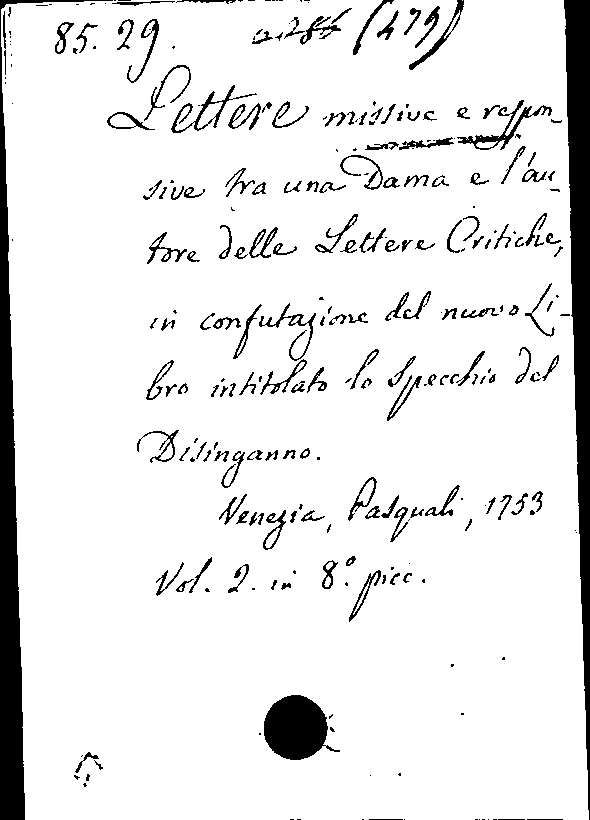 85. 29. a.286 (479)
Lettere missive e respon-
sive tra una Dama e l'au-
tore delle Lettere Critiche,
in confutazione del nuovo Li-
bro intitolato lo Specchio del
Disinganno.
Venezia, Pasquali, 1753
Vol. 2. in 8.° picc.